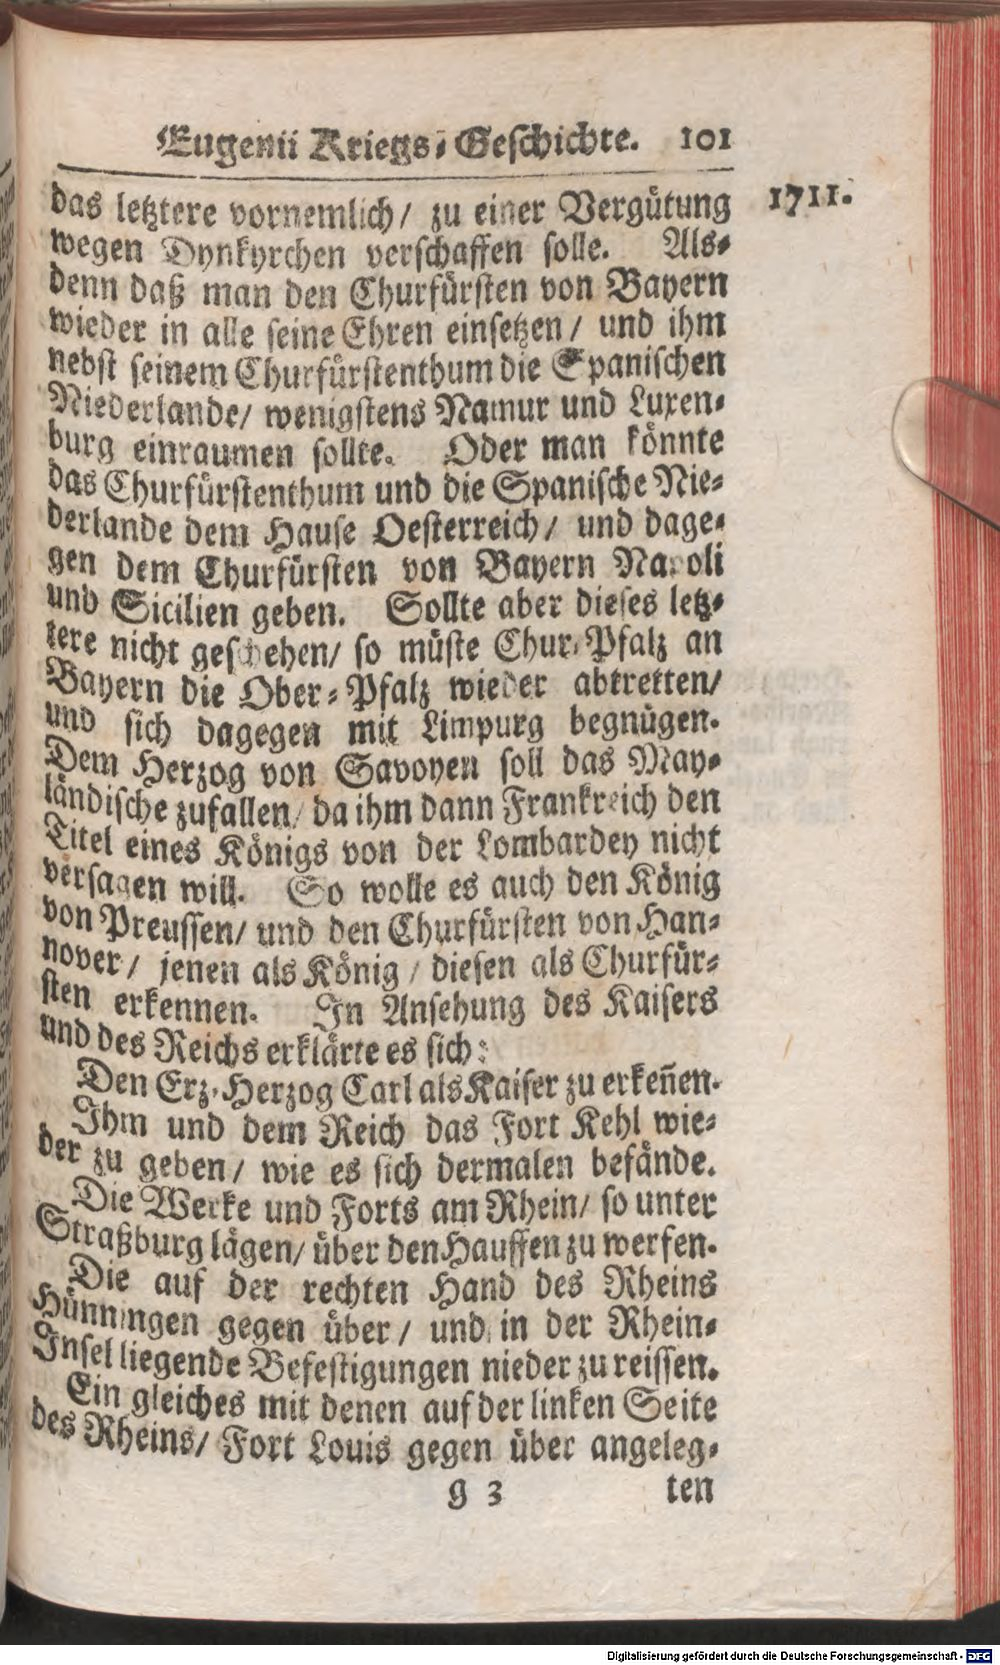 Eugenii Kriegs-Geschichte. 101
1711.
das letztere vornemlich/ zu einer Vergütung
wegen Dynkyrchen verschaffen solle. Als-
denn daß man den Churfürsten von Bayern
wieder in alle seine Ehren einsetzen/ und ihm
nebst seinem Churfürstenthum die Spanischen
Niederlande/ wenigstens Namur und Luxen-
burg einraumen sollte. Oder man könnte
das Churfürstenthum und die Spanische Nie-
derlande dem Hause Oesterreich/ und dage-
gen dem Churfürsten von Bayern Napoli
und Sicilien geben. Sollte aber dieses letz-
tere nicht geschehen/ so müste Chur-Pfalz an
Bayern die Ober-Pfalz wieder abtretten/
und sich dagegen mit Limpurg begnügen.
Dem Herzog von Savoyen soll das May-
ländische zufallen/ da ihm dann Frankreich den
Titel eines Königs von der Lombardey nicht
versagen will. So wolle es auch den König
von Preussen/ und den Churfürsten von Han-
nover/ jenen als König/ diesen als Churfür-
sten erkennen. In Ansehung des Kaisers
und des Reichs erklärte es sich:
Den Erz-Herzog Carl als Kaiser zu erkeñen.
Ihm und dem Reich das Fort Kehl wie-
der zu geben/ wie es sich dermalen befände.
Die Werke und Forts am Rhein/ so unter
Straßburg lägen/ über den Hauffen zu werfen.
Die auf der rechten Hand des Rheins
Hünningen gegen über/ und in der Rhein-
Insel liegende Befestigungen nieder zu reissen.
Ein gleiches mit denen auf der linken Seite
des Rheins/ Fort Louis gegen über angeleg-
g 3 ten
Digitalisierung gefördert durch die Deutsche Forschungsgemeinschaft - DFG